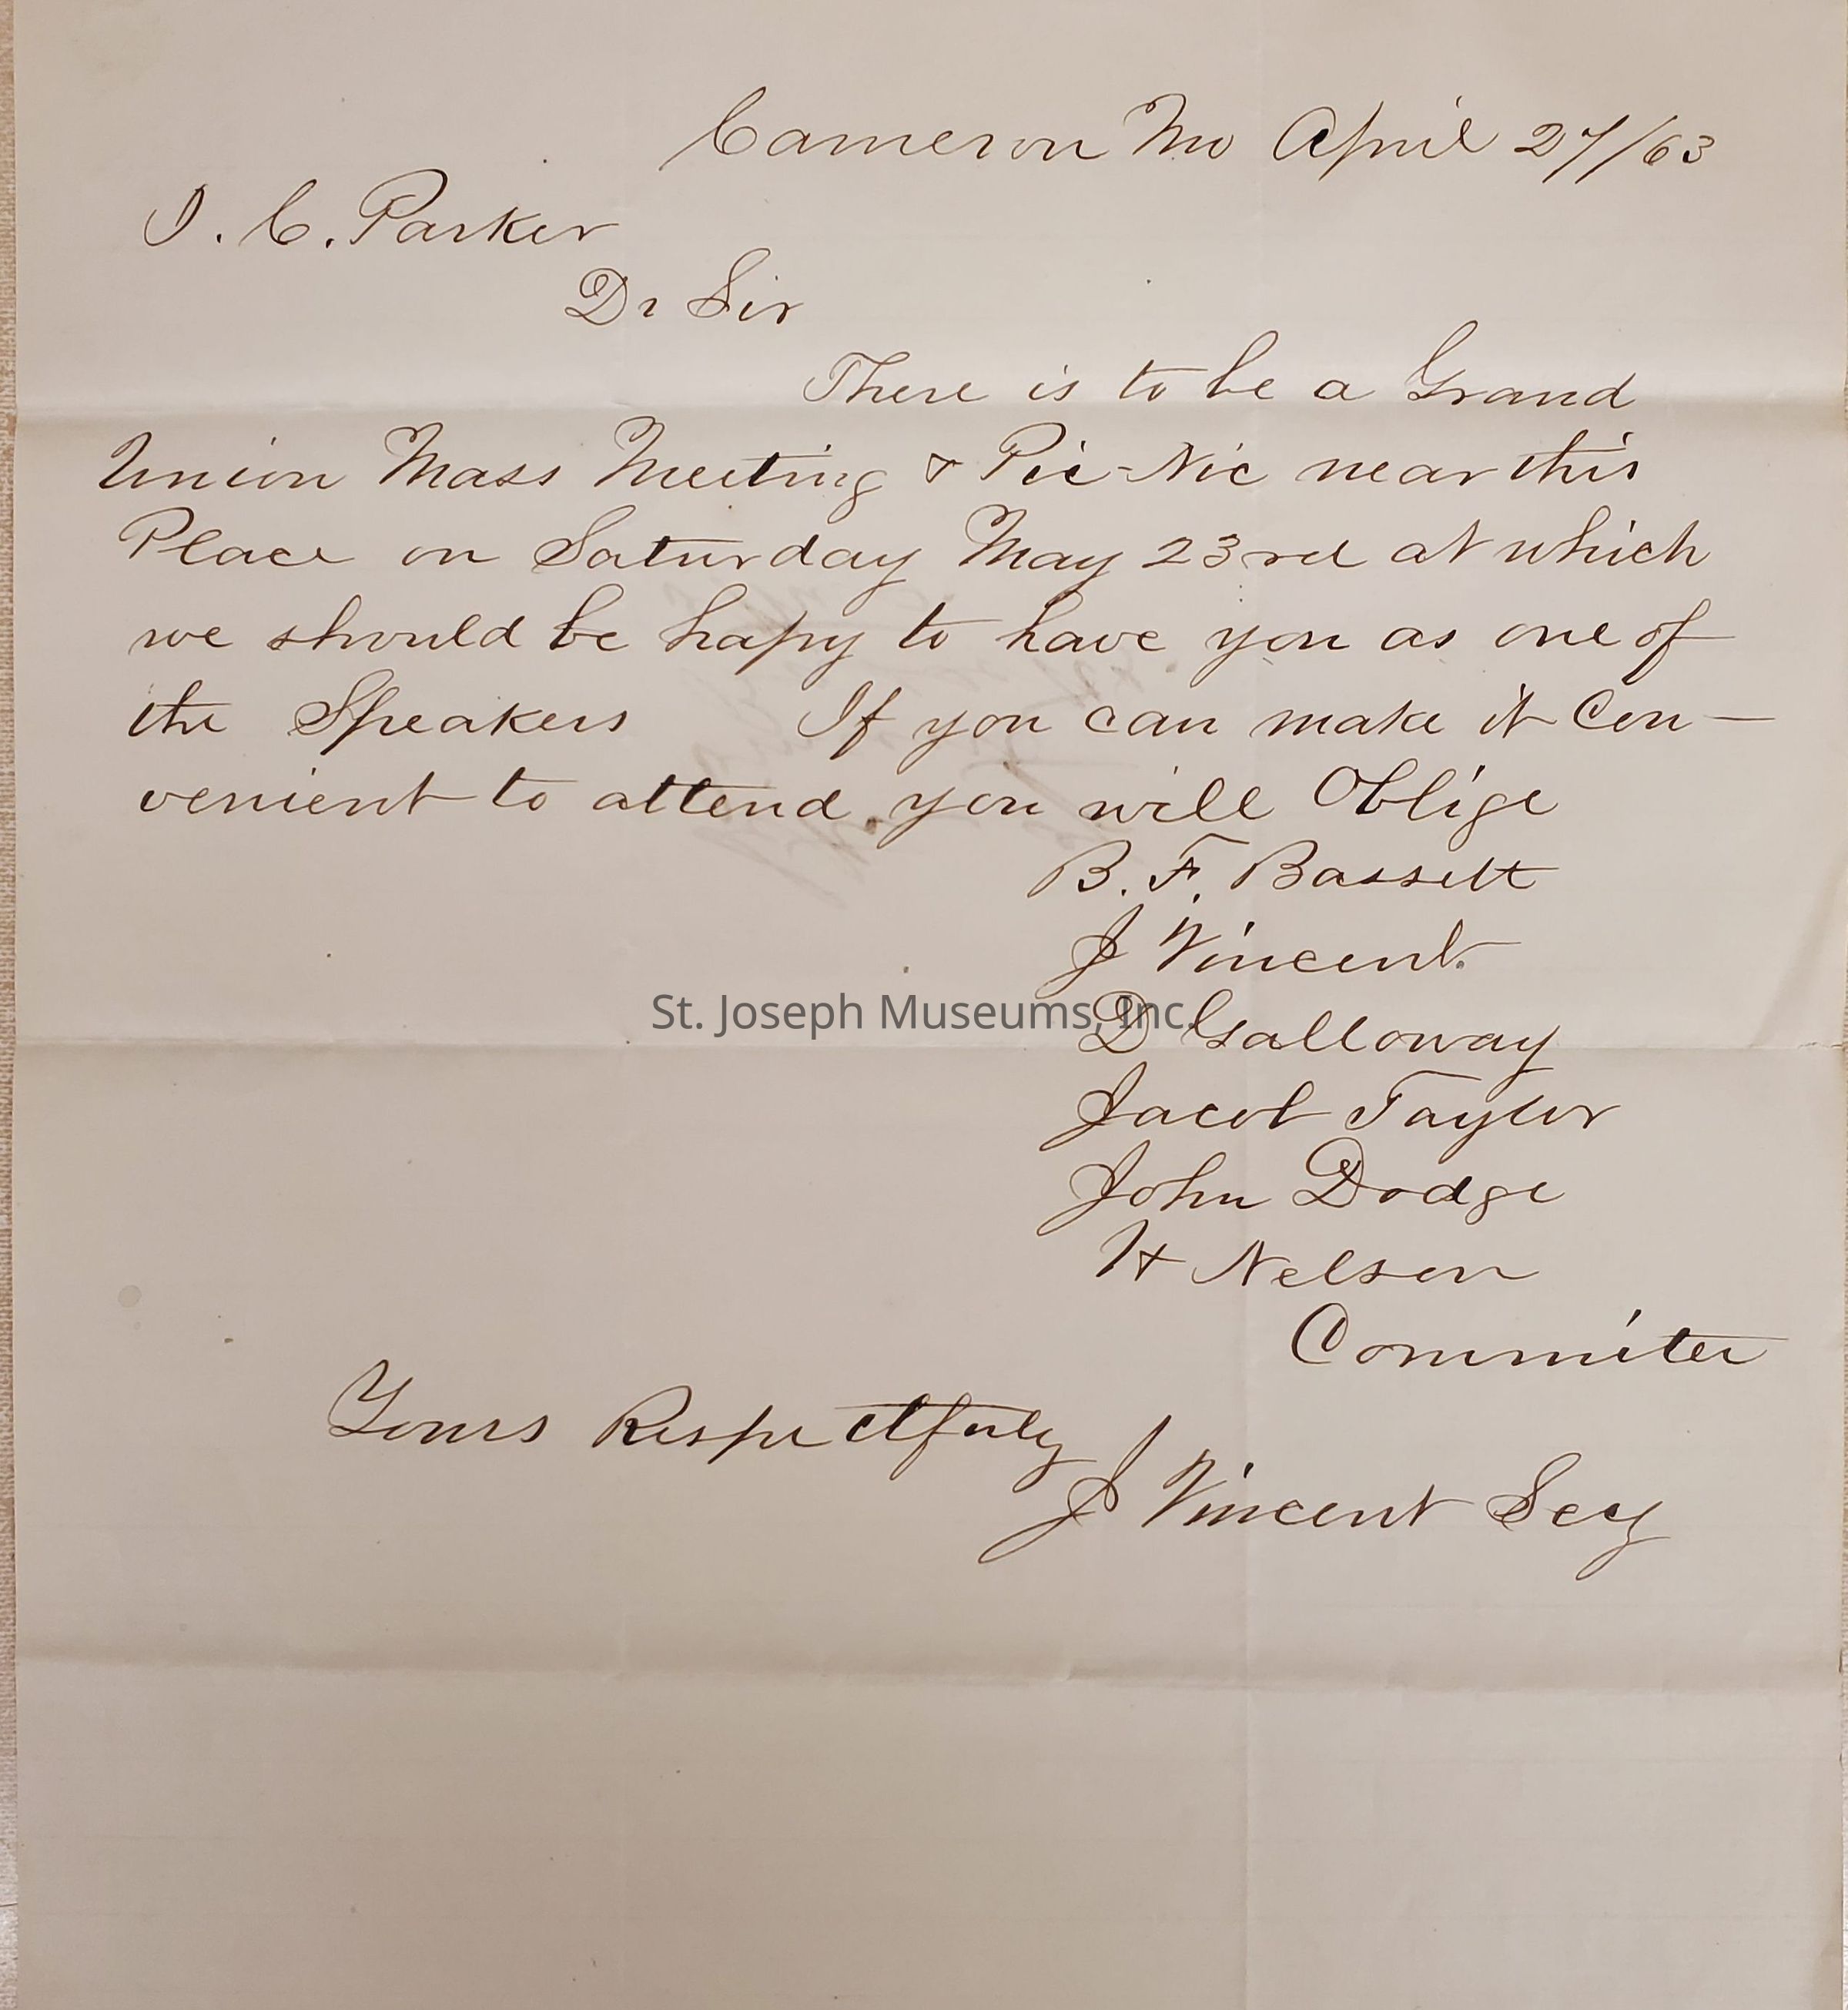 Cameron Mo April 27/63
I. C. Parker
Dr Sir
There is to be a Grand
Union Mass Meeting & Pic-Nic near this
Place on Saturday May 23rd at which
we should be hapy to have you as one of
the Speakers If you can make it Con-
venient to attend, you will Oblige
B. F. Bassett
J Vincent.
St. Joseph Museums, Inc.
D Galloway
Jacob Taylor
John Dodge
H Nelson
Commitee
Yours Respectfuly
J Vincent Secy